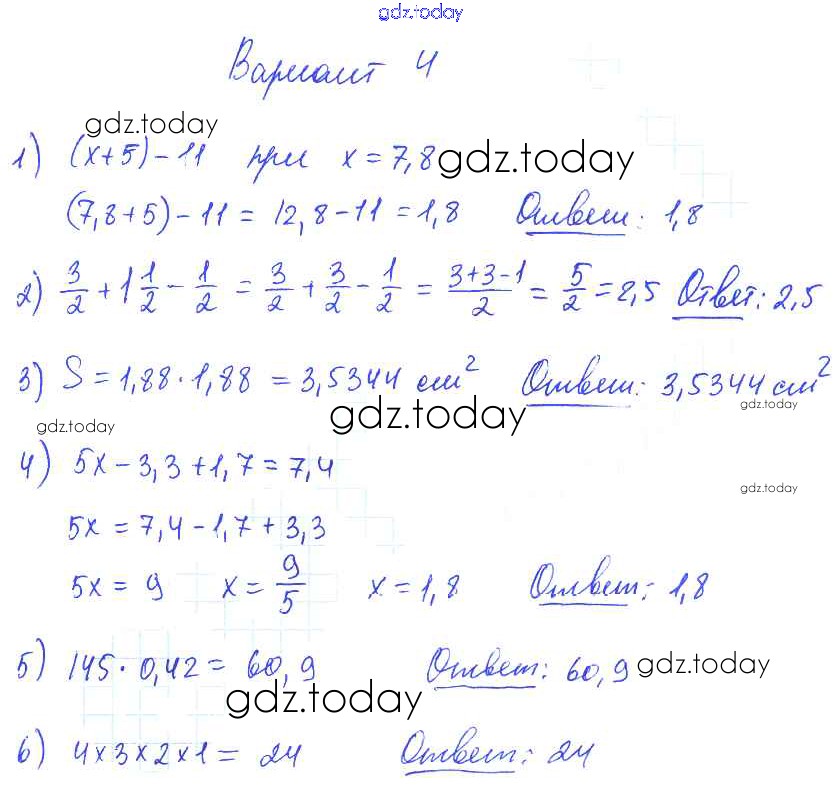 gdz.today
Вариант 4
gdz.today
1) (x+5)-11 при x=7,8 gdz.today
(7,8+5)-11=12,8-11=1,8 Ответ: 1,8
2) 3/2+1 1/2-1/2=3/2+3/2-1/2=(3+3-1)/2=5/2=2,5 Ответ: 2,5
3) S=1,88·1,88=3,5344 см² Ответ: 3,5344 см²
gdz.today
gdz.today
gdz.today
4) 5x-3,3+1,7=7,4
gdz.today
5x=7,4-1,7+3,3
5x=9 x=9/5 x=1,8 Ответ: 1,8
5) 145·0,42=60,9 Ответ: 60,9 gdz.today
gdz.today
6) 4×3×2×1=24 Ответ: 24